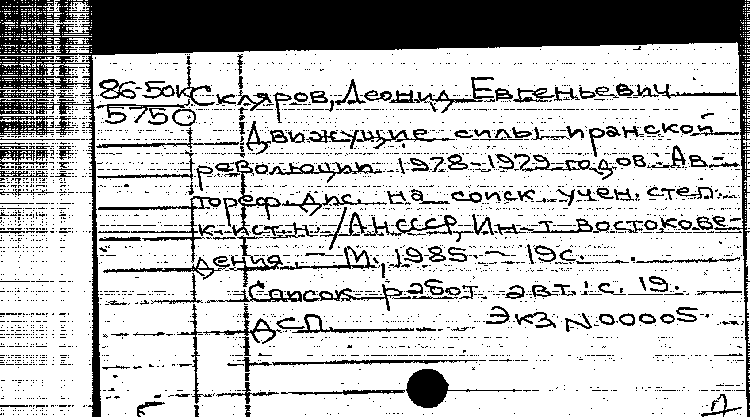 86-50к Скляров, Леонид Евгеньевич
5750
Движущие силы иранской
революции 1978-1979 годов: Ав-
тореф. дис. на соиск. учен. степ.
к. ист. н. / АН СССР, Ин-т востокове-
дения. - М., 1985. - 19 с.
Список работ авт.: с. 19.
ДСП Экз. N 00005.